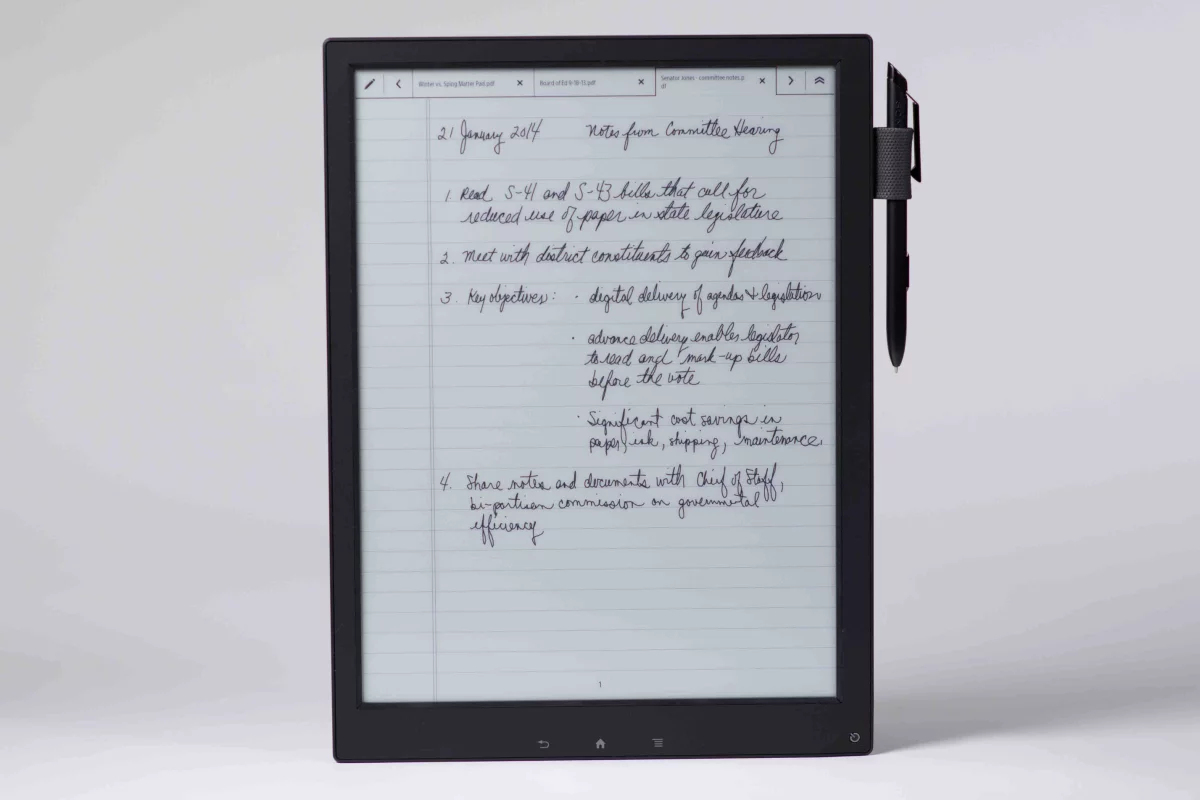 Board of Ed 9-10-13.pdf
Senator Jones - committee notes.p
df
21 January 2014 Notes from Committee Hearing
1. Read S-41 and S-43 bills that call for
reduced use of paper in state legislature
2. Meet with district constituents to gain feedback
3. Key objectives: · digital delivery of agendas & legislation
· advance delivery enables legislator
to read and mark-up bills
before the vote
· Significant cost savings in
paper, ink, shipping, maintenance.
4. Share notes and documents with Chief of Staff,
bi-partisan commission on governmental
efficiency
1